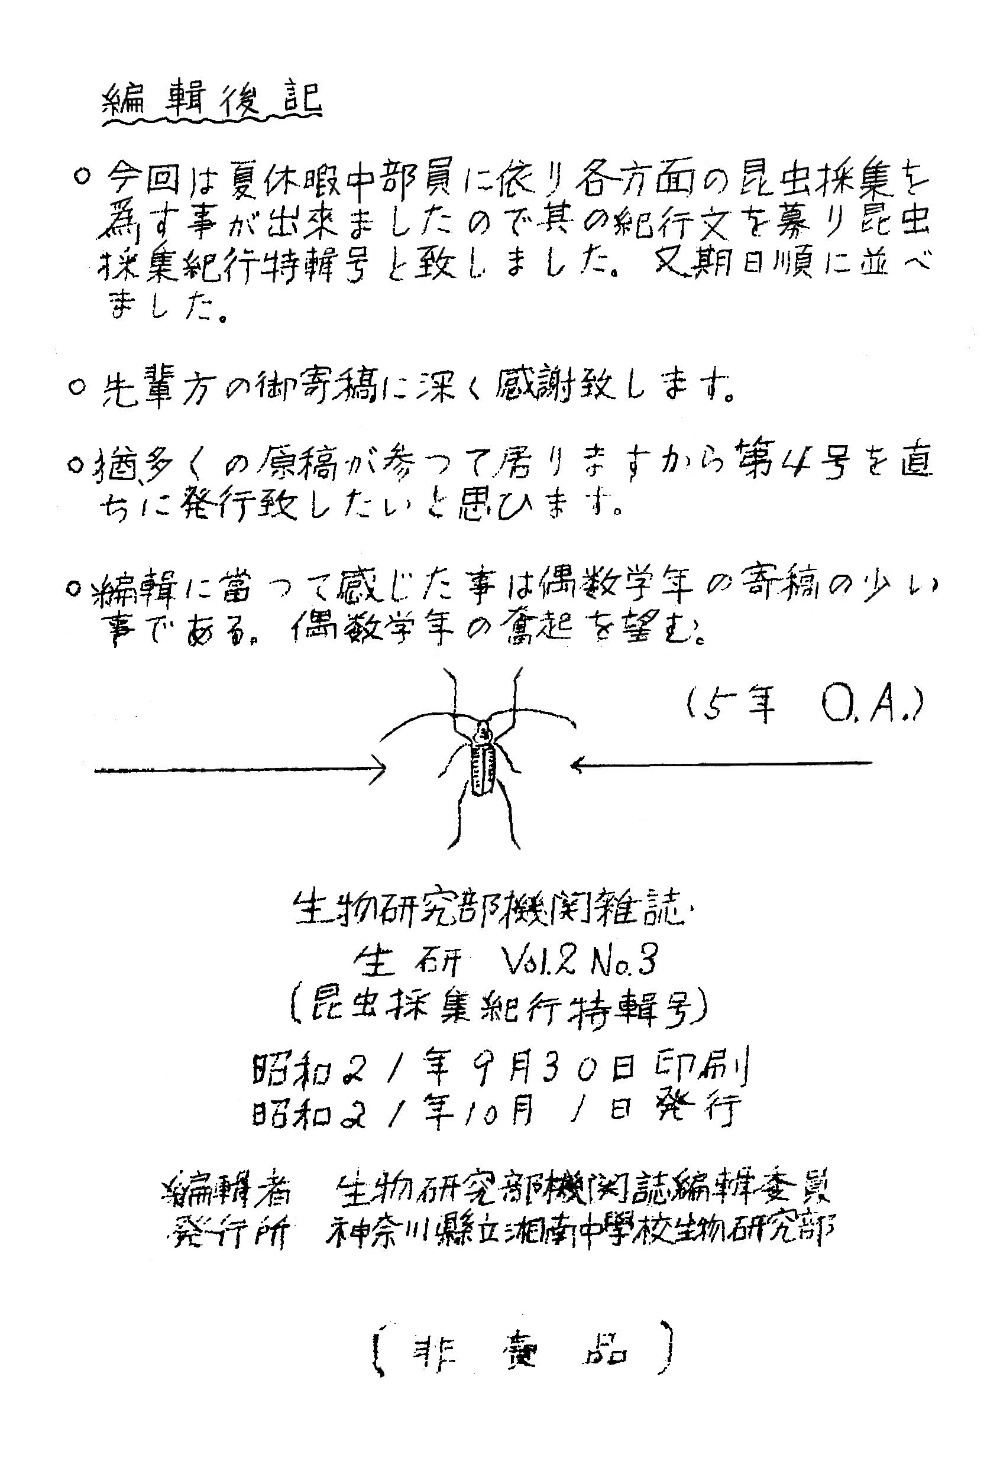 編輯後記
○今回は夏休暇中部員に依り各方面の昆虫採集を
為す事が出来ましたので其の紀行文を募り昆虫
採集紀行特輯号と致しました。又期日順に並べ
ました。
○先輩方の御寄稿に深く感謝致します。
○猶多くの原稿が参つて居りますから第4号を直
ちに発行致したいと思ひます。
○編輯に當つて感じた事は偶数学年の寄稿の少い
事である。偶数学年の奮起を望む。
(5年 O.A.)
生物研究部機関雑誌
生研 Vol.2 No.3
(昆虫採集紀行特輯号)
昭和21年9月30日印刷
昭和21年10月1日発行
編輯者 生物研究部機関誌編輯委員
発行所 神奈川縣立湘南中學校生物研究部
(非賣品)